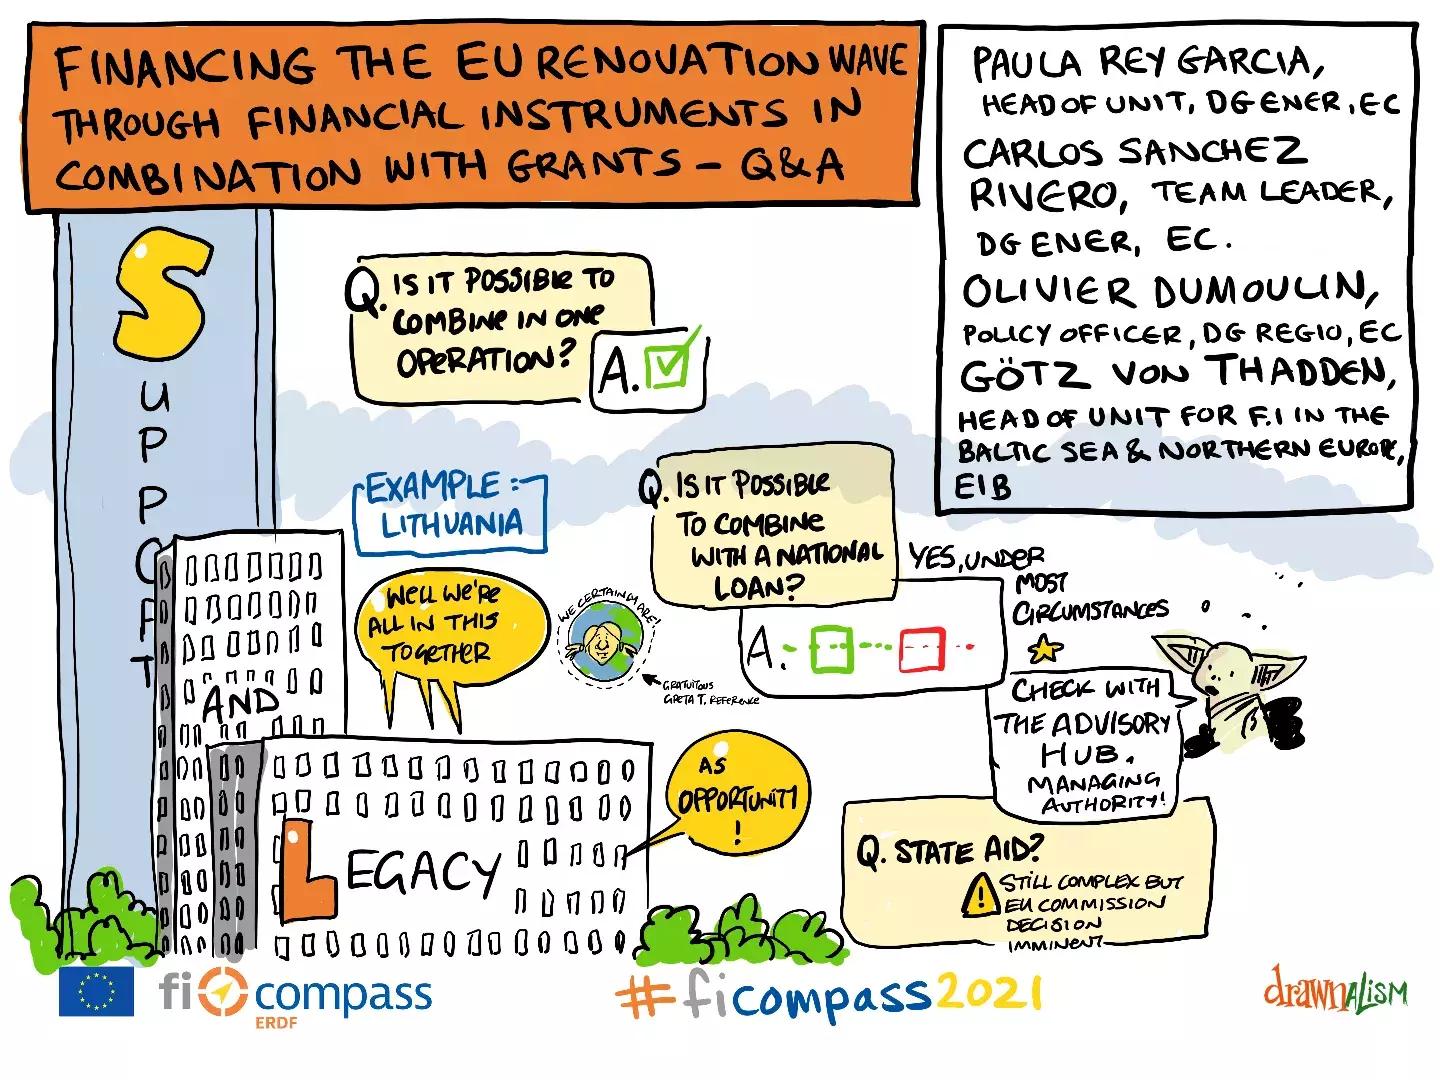 FINANCING THE EU RENOVATION WAVE
THROUGH FINANCIAL INSTRUMENTS IN
COMBINATION WITH GRANTS – Q&A
PAULA REY GARCIA,
HEAD OF UNIT, DG ENER, EC
CARLOS SANCHEZ
RIVERO, TEAM LEADER,
DG ENER, EC.
OLIVIER DUMOULIN,
POLICY OFFICER, DG REGIO, EC
GÖTZ VON THADDEN,
HEAD OF UNIT FOR F.I IN THE
BALTIC SEA & NORTHERN EUROPE,
EIB
SUPPORT
Q. IS IT POSSIBLE TO
COMBINE IN ONE
OPERATION?
A.
EXAMPLE :-
LITHUANIA
WELL WE'RE
ALL IN THIS
TOGETHER
WE CERTAINLY ARE!
GRATUITOUS
GRETA T. REFERENCE
Q. IS IT POSSIBLE
TO COMBINE
WITH A NATIONAL
LOAN?
YES, UNDER
MOST
CIRCUMSTANCES
A.
CHECK WITH
THE ADVISORY
HUB.
MANAGING
AUTHORITY!
AND
LEGACY
AS
OPPORTUNITY
!
Q. STATE AID?
STILL COMPLEX BUT
EU COMMISSION
DECISION
IMMINENT
fi compass
ERDF
#ficompass2021
drawnalism